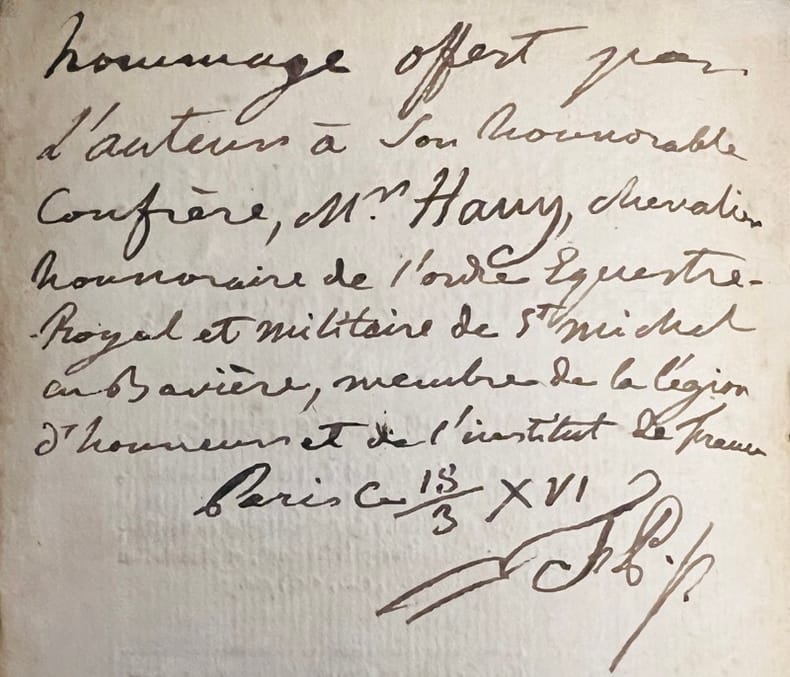 hommage offert par
L'auteur à son honnorable
Confrère, Mr. Hauy, chevalier
honnoraire de l'ordre Equestre-
Royal et militaire de St michel
en Bavière, membre de la légion
d'honneur et de l'institut de france
Paris Ce 18/3 XVI